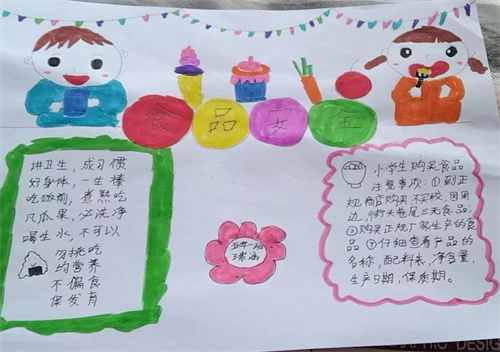 食品安全
讲卫生，成习惯
好身体，一生棒
吃饭前，煮熟吃
凡瓜果，必洗净
喝生水，不可以
勿挑吃
均营养
不偏食
保发育
五年一班
小学生购买食品
注意事项：①到正
规商店购买，不买校园周
边、街头巷尾三无食品；
②购买正规厂家生产的食
品 ③仔细查看产品的
名称，配料表，净含量，
生产日期，保质期。
GRAPHIC DESIG